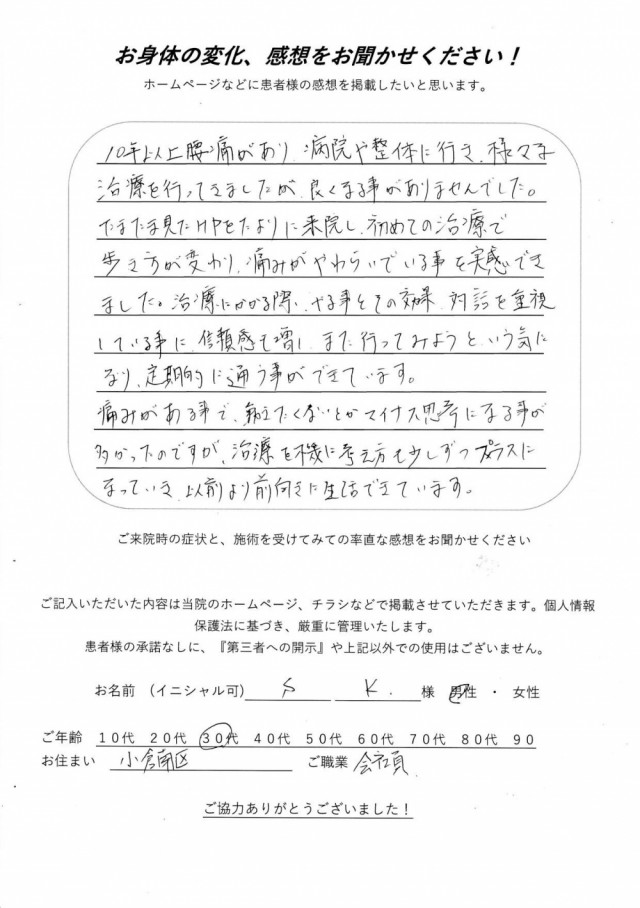 お身体の変化、感想をお聞かせください！
ホームページなどに患者様の感想を掲載したいと思います。
10年以上腰痛があり、病院や整体に行き、様々な
治療を行ってきましたが、良くなる事がありませんでした。
たまたま見たHPをたよりに来院し、初めての治療で
歩き方が変わり、痛みがやわらいでいる事を実感でき
ました。治療にかかる際、やる事とその効果、対話を重視
している事に、信頼感も増し、また行ってみようという気に
なり、定期的に通う事ができています。
痛みがある事で、動きたくないとかマイナス思考になる事が
多かったのですが、治療を機に考え方も少しずつプラスに
なっていき、以前より前向きに生活できています。
ご来院時の症状と、施術を受けてみての率直な感想をお聞かせください
ご記入いただいた内容は当院のホームページ、チラシなどで掲載させていただきます。個人情報
保護法に基づき、厳重に管理いたします。
患者様の承諾なしに、『第三者への開示』や上記以外での使用はございません。
お名前 （イニシャル可） S K. 様 男性 ・ 女性
ご年齢 10代 20代 30代 40代 50代 60代 70代 80代 90
お住まい 小倉南区 ご職業 会社員
ご協力ありがとうございました！